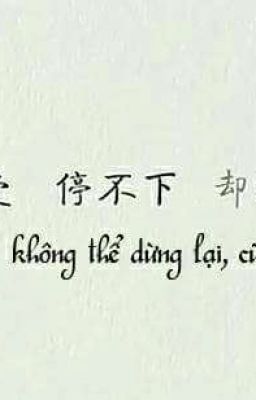 停不下 却
không thể dừng lại,